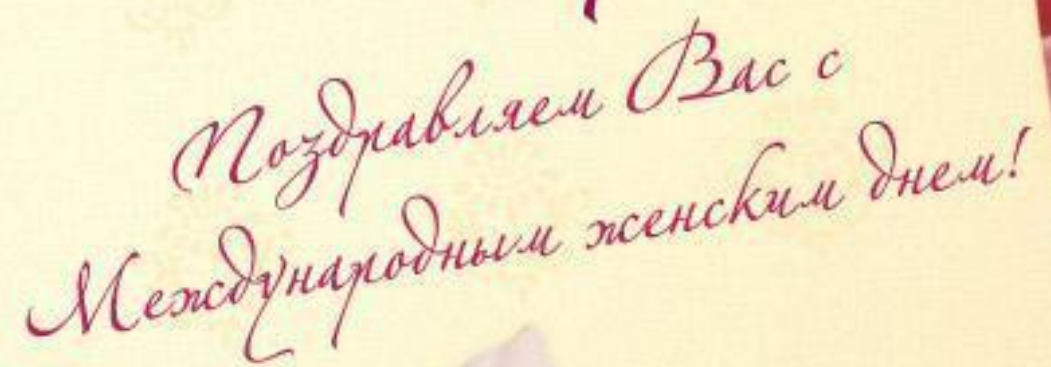 Поздравляем Вас с
Международным женским днем!